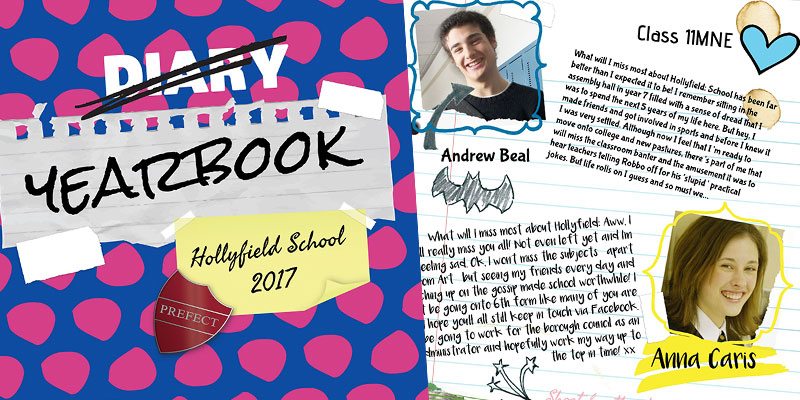 DIARY
YEARBOOK
Hollyfield School
2017
PREFECT
Class 11MNE
What will I miss most about Hollyfield: School has been far
better than I expected it to be! I remember sitting in the
assembly hall in year 7 filled with a sense of dread that I
was to spend the next 5 years of my life here. But hey, I
made friends and got involved in sports and before I knew it
I was very settled. Although now I feel that I'm ready to
move onto college and new pastures, there's part of me that
will miss the classroom banter and the amusement it was to
hear teachers telling Robbo off for his 'stupid' practical
jokes. But life rolls on I guess and so must we...
Andrew Beal
What will I miss most about Hollyfield: Aww, I
ll really miss you all! Not even left yet and Im
eeling sad. Ok, I won't miss the subjects - apart
om Art - but seeing my friends every day and
ching up on the gossip made school worthwhile! I
t be going onto 6th form like many of you are
hope you'll all still keep in touch via Facebook
be going to work for the borough council as an
dministrator and hopefully work my way up to
the top in time! xx
Anna Caris